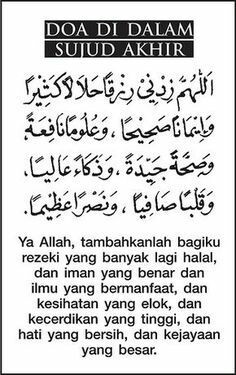 DOA DI DALAM
SUJUD AKHIR
اَللّٰهُمَّ زِدْنِيْ رِزْقًا حَلَالًا كَثِيْرًا
وَاِيْمَانًا صَحِيْحًا ، وَعُلُوْمًا نَافِعَةً
وَصِحَّةً جَيِّدَةً ، وَذَكَاءً عَالِيًا ،
وَقَلْبًا صَافِيًا ، وَنَصْرًا عَظِيْمًا .
Ya Allah, tambahkanlah bagiku
rezeki yang banyak lagi halal,
dan iman yang benar dan
ilmu yang bermanfaat, dan
kesihatan yang elok, dan
kecerdikan yang tinggi, dan
hati yang bersih, dan kejayaan
yang besar.